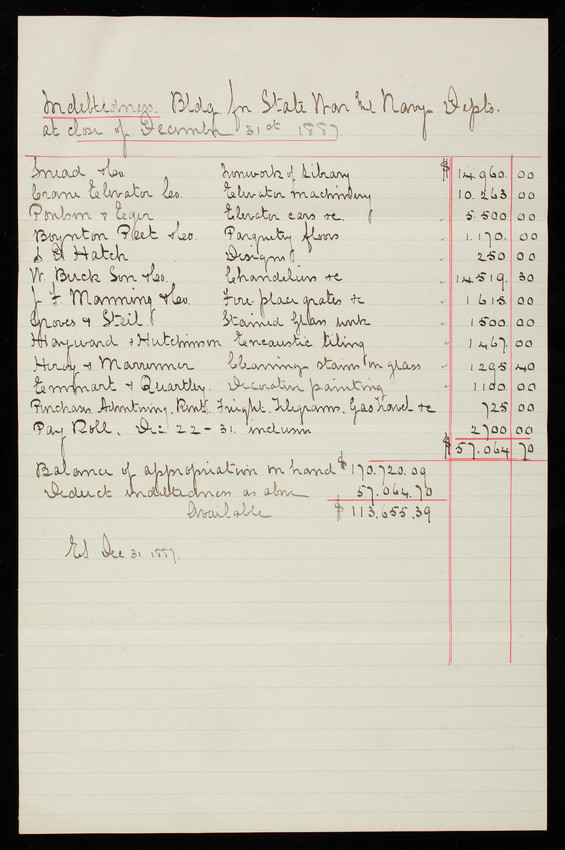 Indebtedness. Bldg for State War and Navy Depts.
at close of December 31st 1887.
Snead & Co. Ironwork of Library $ 14.960. 00
Crane Elevator Co. Elevator machinery 10.263 00
Poulson & Eger Elevator cars &c. 5.500 00
Boynton Peet & Co. Parquetry floors 1.170. 00
S A Hatch Designs 250 00
W. Buck Son & Co. Chandeliers &c 14.519. 30
J. F Manning & Co. Fire place grates &c 1615 00
Groves & Steil Stained Glass work 1500 00
Hayward & Hutchinson Encaustic tiling 1467. 00
Cleaning stains on glass 1295 40
Emmart & Quartley. Decorative painting 1100 00
Purchases Advertising. Rent. Freight. Telegrams. Gas travel &c 725 00
Pay Roll. Dec 22 - 31. inclusive 2700 00
$ 57.064 70
Balance of appropriation on hand $ 170.720.09
Deduct indebtedness as above 57.064.70
Available $ 113.655.39
Dec 31. 1887.